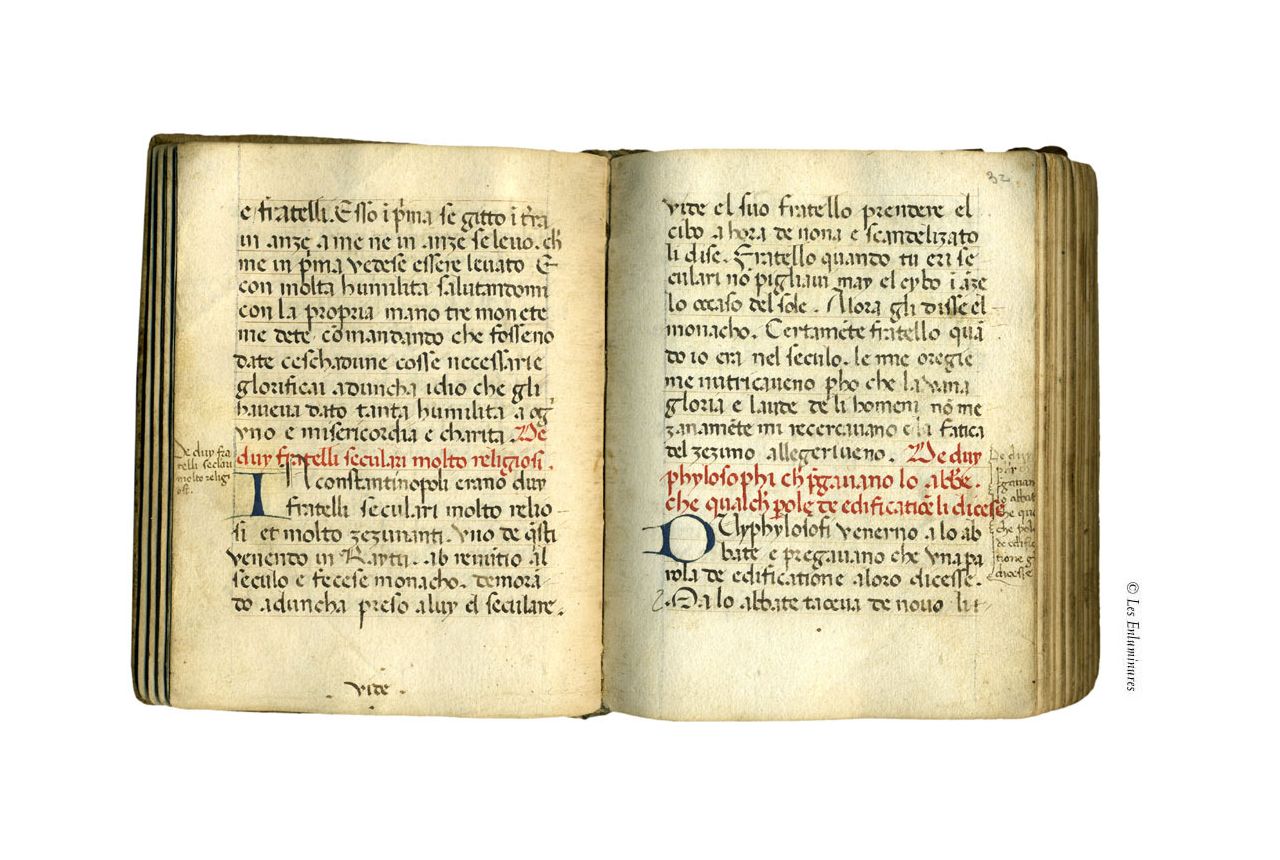 e fratelli. Esso ī p̄ma se gitto ī t̄ra
in anze a me ne in anze se leuo. ch̄
me in p̄ma vedese essere leuato E
con molta humilita salutandomi
con la propria mano tre monete
me dete comandando che fosseno
date ceschadune cosse necessarie
glorificai aduncha idio che gli
haueua dato tanta humilita a og
vno e misericordia e charita. De
duy fratelli seculari molto religiosi.
De duy fra
telli seclari
molto religi
osi.
IN constantinopoli erano duy
fratelli seculari molto relio-
si et molto zezunanti. vno de q̄sti
venendo in Raytu. ab renūtio al
seculo e fecese monacho. demora-
do aduncha preso a luy el seculare.
vite
32
vite el suo fratello prendere el
cibo a hora de nona e scandelizato
li dise. Fratello quando tu eri se
culari nō pigliaui may el cybo ī āze
lo occaso del sole. Alora gli disse el
monacho. Certamēte fratello quā
do io era nel seculo. le mie oregie
me nutricaueno p̄ho che la vana
gloria e laude de li homeni nō me
zanamēte mi recercauano e la fatica
del zezuno allegeriueno. De duy
phylosophi ch̄ p̄gauano lo abbe.
che qualch̄ pole de edificatiōe li dicese
De duy
gauan
lo abbat
che qua
che pole
de edifica
tione g
dicesse
DUyphylosofi venerno a lo ab
bate e pregauano che vna pa
rola de edificatione a loro dicesse.
Ma lo abbate taceua de nouo li t-
© Les Enluminures